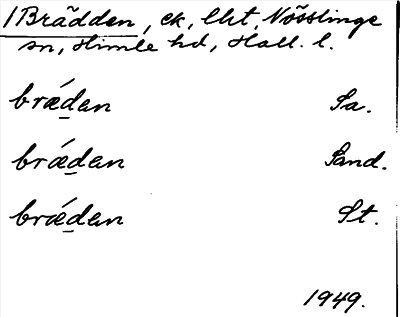 /Brädden, ek, lht, Nösslinge
sn, Himle hd, Hall. l.
brǽdan Sa.
brǽdan Sand.
brǽdan St.
1949.